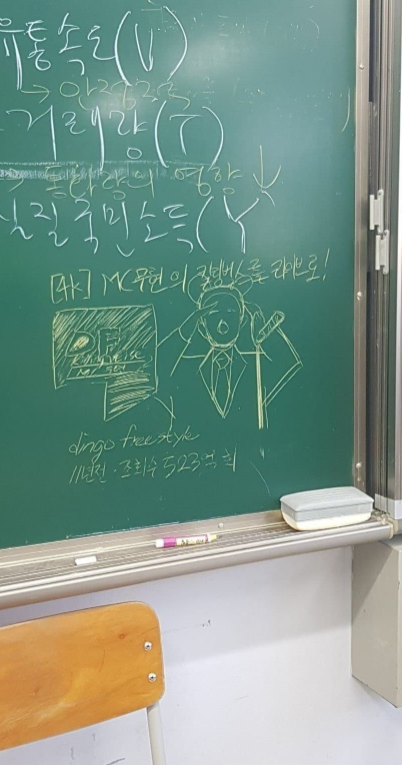 유통속도(V)
→ 안정적
거래량(T)
→ 통화량의 영향
실질국민소득(Y
[4K] MC무현의 킬링벌스를 라이브로!
dingo freestyle
11년전 · 조회수 523억 회